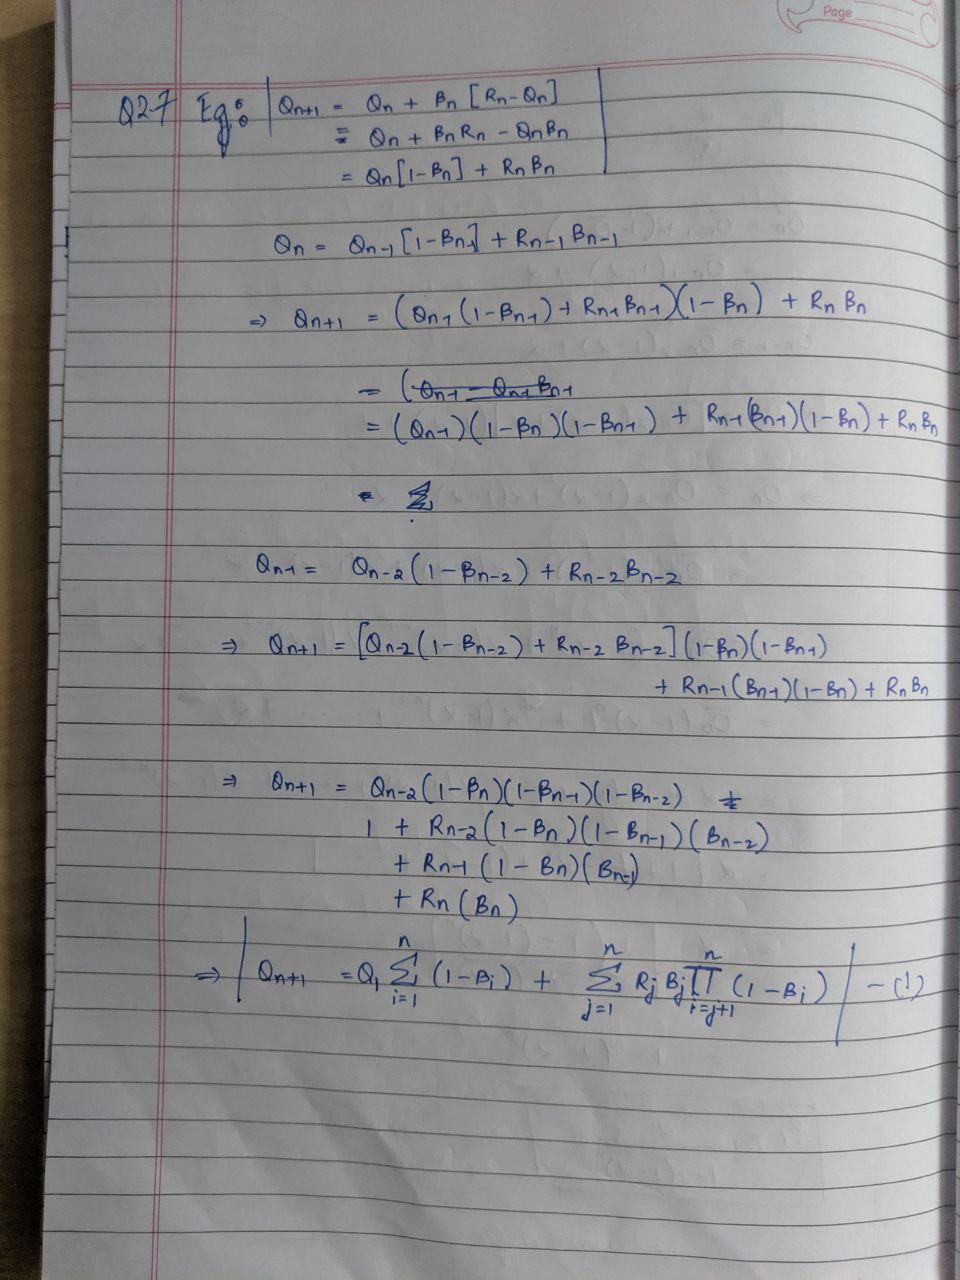 Page
Q2.7 Eg:
Qn+1 = Qn + Bn [Rn-Qn]
= Qn + BnRn - QnBn
= Qn[1-Bn] + RnBn
Qn = Qn-1 [1-Bn-1] + Rn-1 Bn-1
⇒ Qn+1 = (Qn-1 (1-Bn-1) + Rn-1 Bn-1)(1-Bn) + Rn Bn
= (Qn-1 - Qn-1 Bn-1
= (Qn-1)(1-Bn)(1-Bn-1) + Rn-1(Bn-1)(1-Bn) + RnBn
= Σ
Qn-1 = Qn-2(1-Bn-2) + Rn-2Bn-2
⇒ Qn+1 = [Qn-2(1-Bn-2) + Rn-2 Bn-2](1-Bn)(1-Bn-1)
+ Rn-1(Bn-1)(1-Bn) + RnBn
⇒ Qn+1 = Qn-2(1-Bn)(1-Bn-1)(1-Bn-2) +
1 + Rn-2(1-Bn)(1-Bn-1)(Bn-2)
+ Rn-1 (1-Bn)(Bn-1)
+ Rn(Bn)
⇒ Qn+1 = Q1 Σ_{i=1}^{n} (1-Bi) + Σ_{j=1}^{n} Rj Bj Π_{i=j+1}^{n} (1-Bi) - (1)